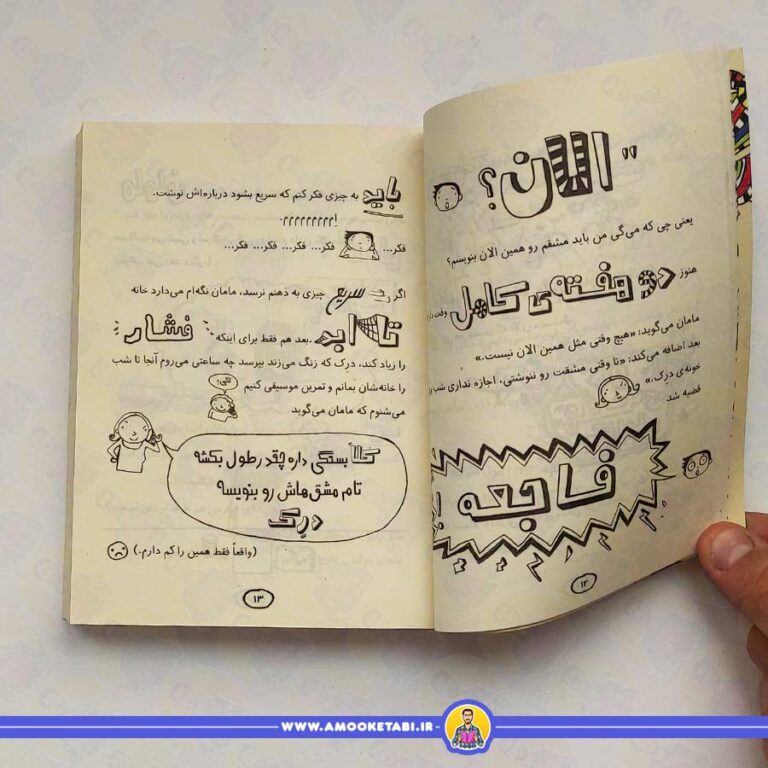 "الان؟
یعنی چی که می‌گی من باید مشقم رو همین الان بنویسم؟
هنوز دو هفته‌ی کامل وقت
مامان می‌گوید: «هیچ وقتی مثل همین الان نیست.»
بعد اضافه می‌کند: «تا وقتی مشقت رو ننوشتی، اجازه نداری شب
خونه‌ی درک.»
قضیه شد
فاجعه
۱۲
باید به چیزی فکر کنم که سریع بشود درباره‌اش نوشت.
فکر... فکر... فکر... فکر... فکر...
اگر سریع چیزی به ذهنم نرسد، مامان نگه‌ام می‌دارد خانه
تا ابد. بعد هم فقط برای اینکه فشار
را زیاد کند، درک که زنگ می‌زند بپرسد چه ساعتی می‌روم آنجا تا شب
را خانه‌شان بمانم و تمرین موسیقی کنیم
می‌شنوم که مامان می‌گوید
کلاً بستگی داره چقدر طول بکشه
تام مشق‌هاش رو بنویسه
درک
(واقعاً فقط همین را کم دارم.)
۱۳
WWW.AMOOKETABI.IR